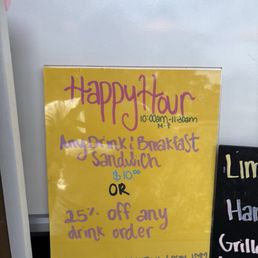 Happy Hour
10:00am-11:00am
M-F
Any Drink & Breakfast
Sandwich
$10.00
OR
25% off any
drink order
Lim
Ha
Grill